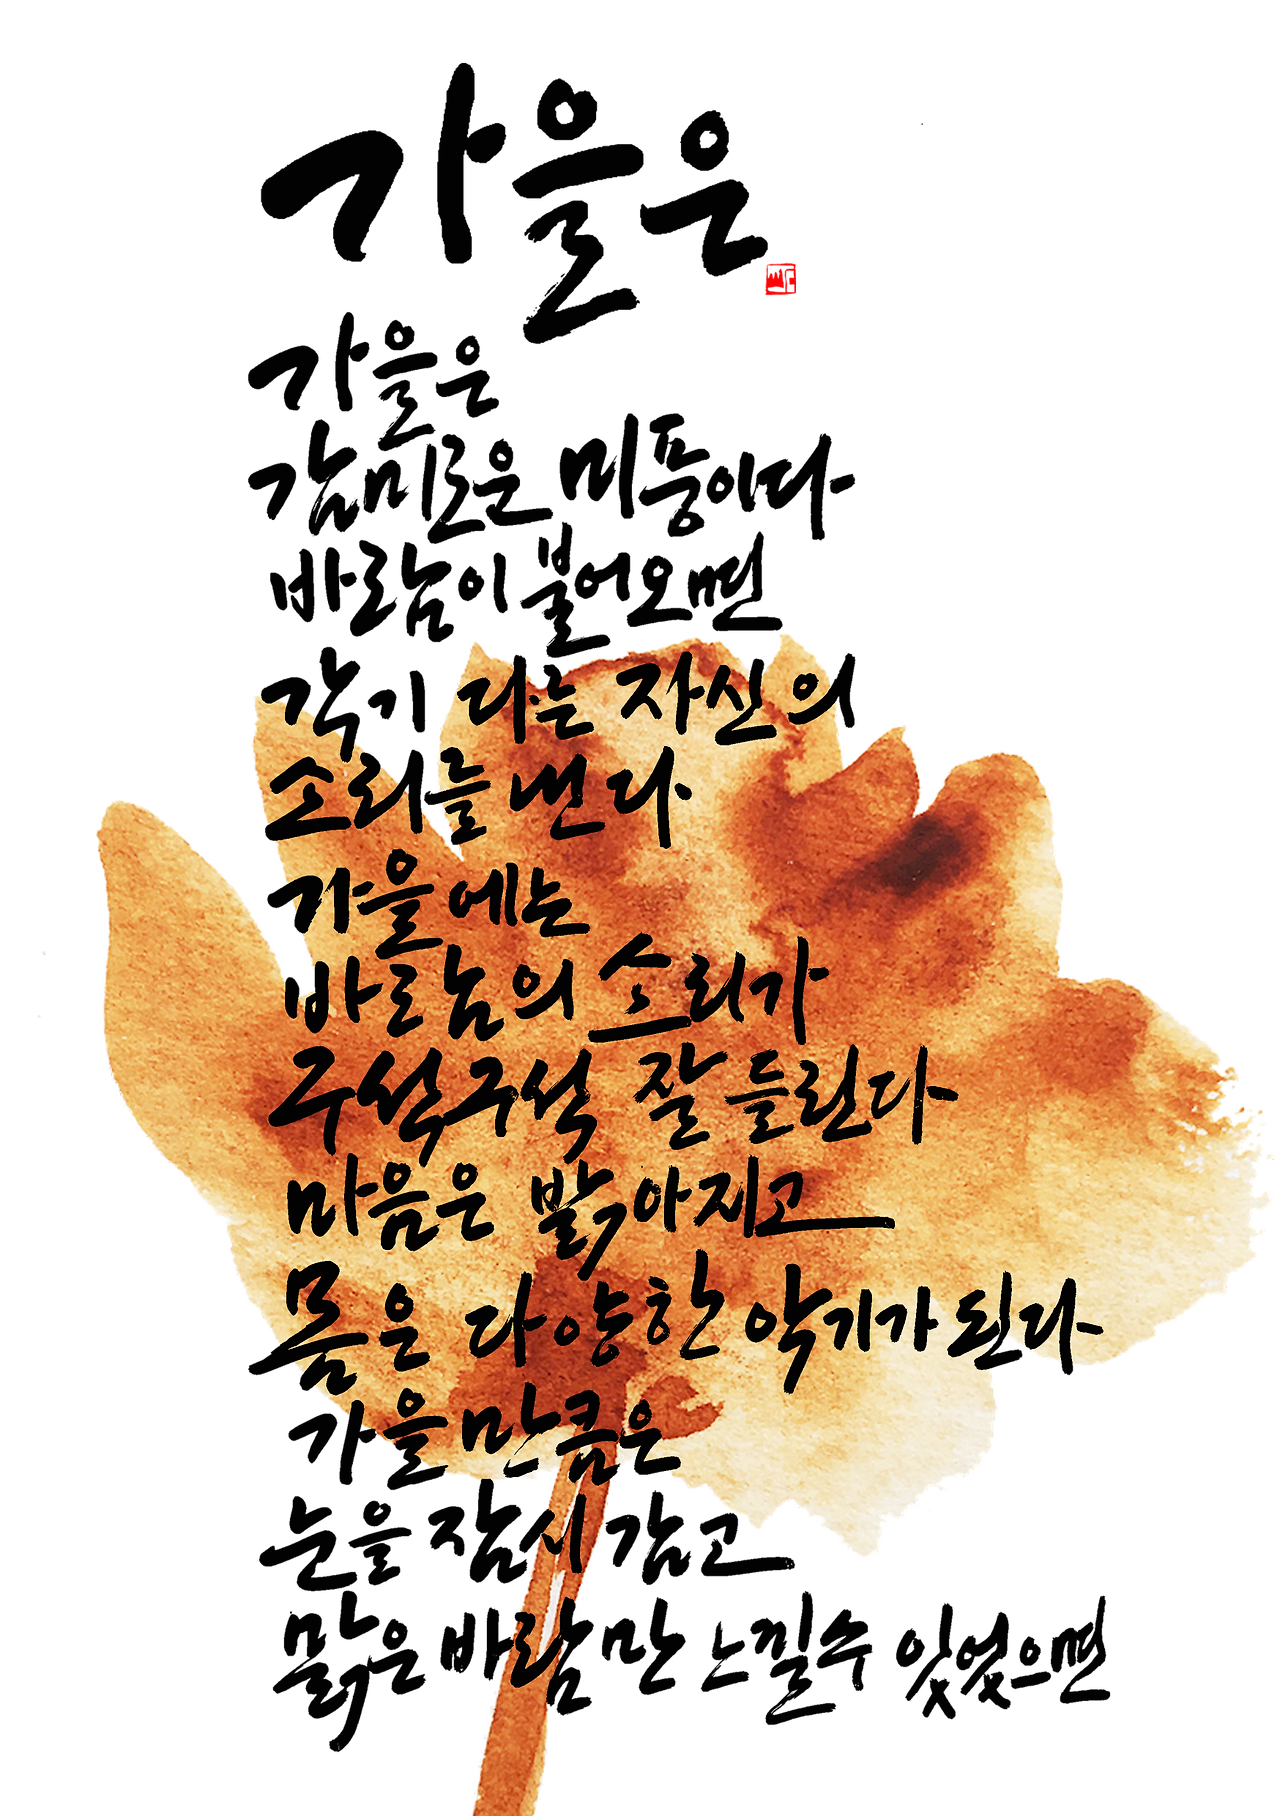 가을은
가을은
감미로운 미풍이다
바람이 불어오면
각기 다른 자신의
소리를 낸다
가을에는
바람의 소리가
구석구석 잘 들린다
마음은 밝아지고
몸은 다양한 악기가 된다
가을만큼은
눈을 잠시 감고
맑은 바람만 느낄 수 있었으면